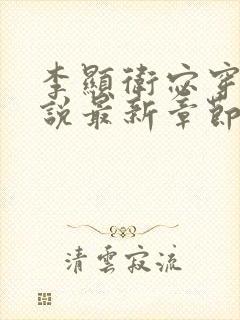 李顯衛宓穿
說最新章節
清雲寂流